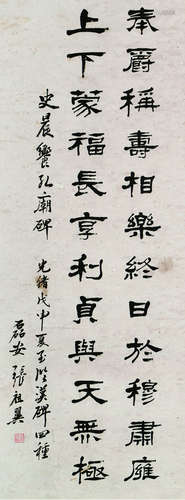 奉爵稱壽相樂終日於穆肅廱
上下蒙福長享利貞與天無極
史晨饗孔廟碑 光緒戊申夏至臨漢碑四種
磊安張祖翼